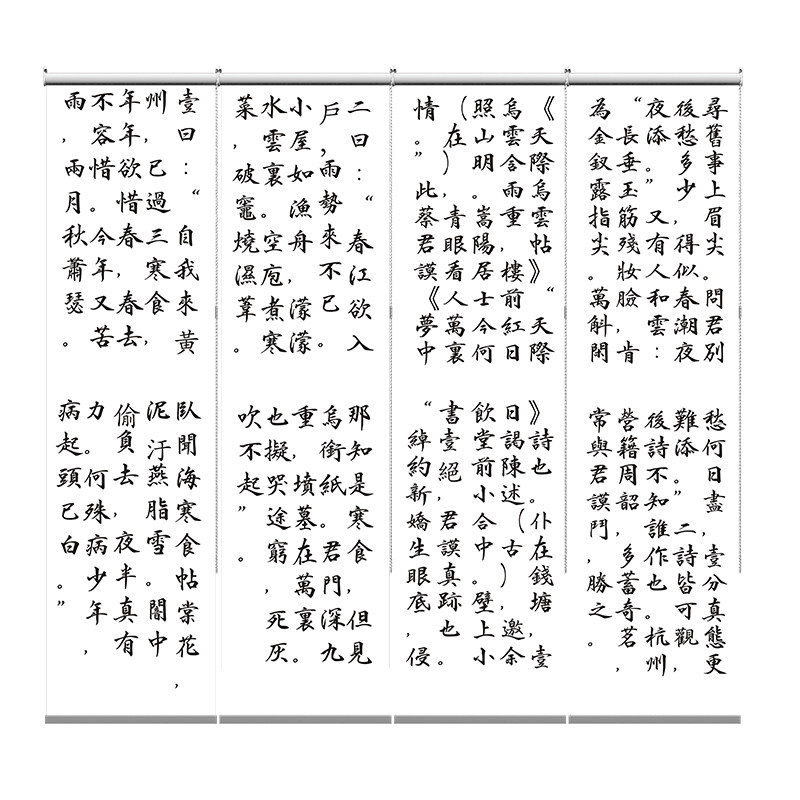 壹曰：“自我來黃
州，已過三寒食，
年年欲惜春，春去
不容惜。今年又苦
雨，兩月秋蕭瑟。
臥聞海寒食帖棠花，
泥汙燕脂雪。闇中
偷負去，夜半真有
力。何殊病少年，
病起頭已白。”
二曰：“春江欲入
戶，雨勢來不已。
小屋如漁舟，濛濛
水雲裏。空庖煮寒
菜，破竈燒濕葦。
那知是寒食，但見
烏銜紙。君門深九
重，墳墓在萬裏。
也擬哭途窮，死灰
吹不起。”
《天際烏雲帖》“天際
烏雲含雨重，樓前紅日
照山明。嵩陽居士今何
（在），青眼看人萬裏
情。”此蔡君謨《夢中
》詩也。仆在錢塘，壹
日謁陳述（古），邀余
飲堂前小合中。壁上小
書壹絕君謨真跡也。
“綽約新嬌生眼底，侵
尋舊事上眉尖。問君別
後愁多少，得似春潮夜
夜添。”又有人和雲：
“長垂玉筋殘妝臉，肯
為金釵露指尖。萬斛閑
愁何日盡，壹分真態更
難添”二詩皆可觀，
後詩不知誰作也。杭州，
營籍周韶，多蓄奇茗，
常與君謨鬥，勝之。